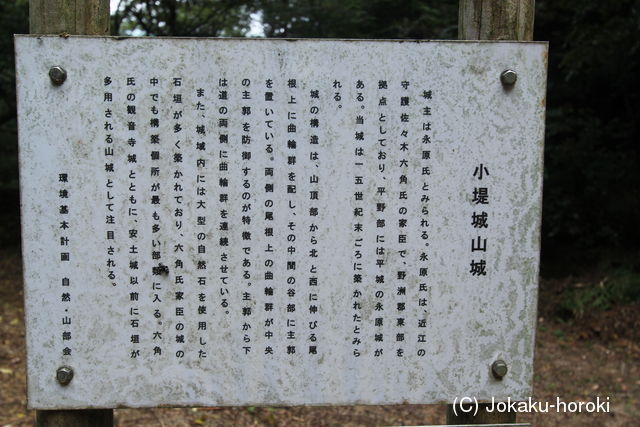 小堤城山城
城主は永原氏とみられる。永原氏は、近江の
守護佐々木六角氏の家臣で、野洲郡東部を
拠点としており、平野部には平城の永原城が
ある。当城は一五世紀末ごろに築かれたとみら
れる。
城の構造は、山頂部から北と西に伸びる尾
根上に曲輪群を配し、その中間の谷部に主郭
を置いている。両側の尾根上の曲輪群が中央
の主郭を防御するのが特徴である。主郭から下
は道の両側に曲輪群を連続させている。
また、城域内には大型の自然石を使用した
石垣が多く築かれており、六角氏家臣の城の
中でも構築個所が最も多い部類に入る。六角
氏の観音寺城とともに、安土城以前に石垣が
多用される山城として注目される。
環境基本計画 自然・山部会
(C) Jokaku-horoki